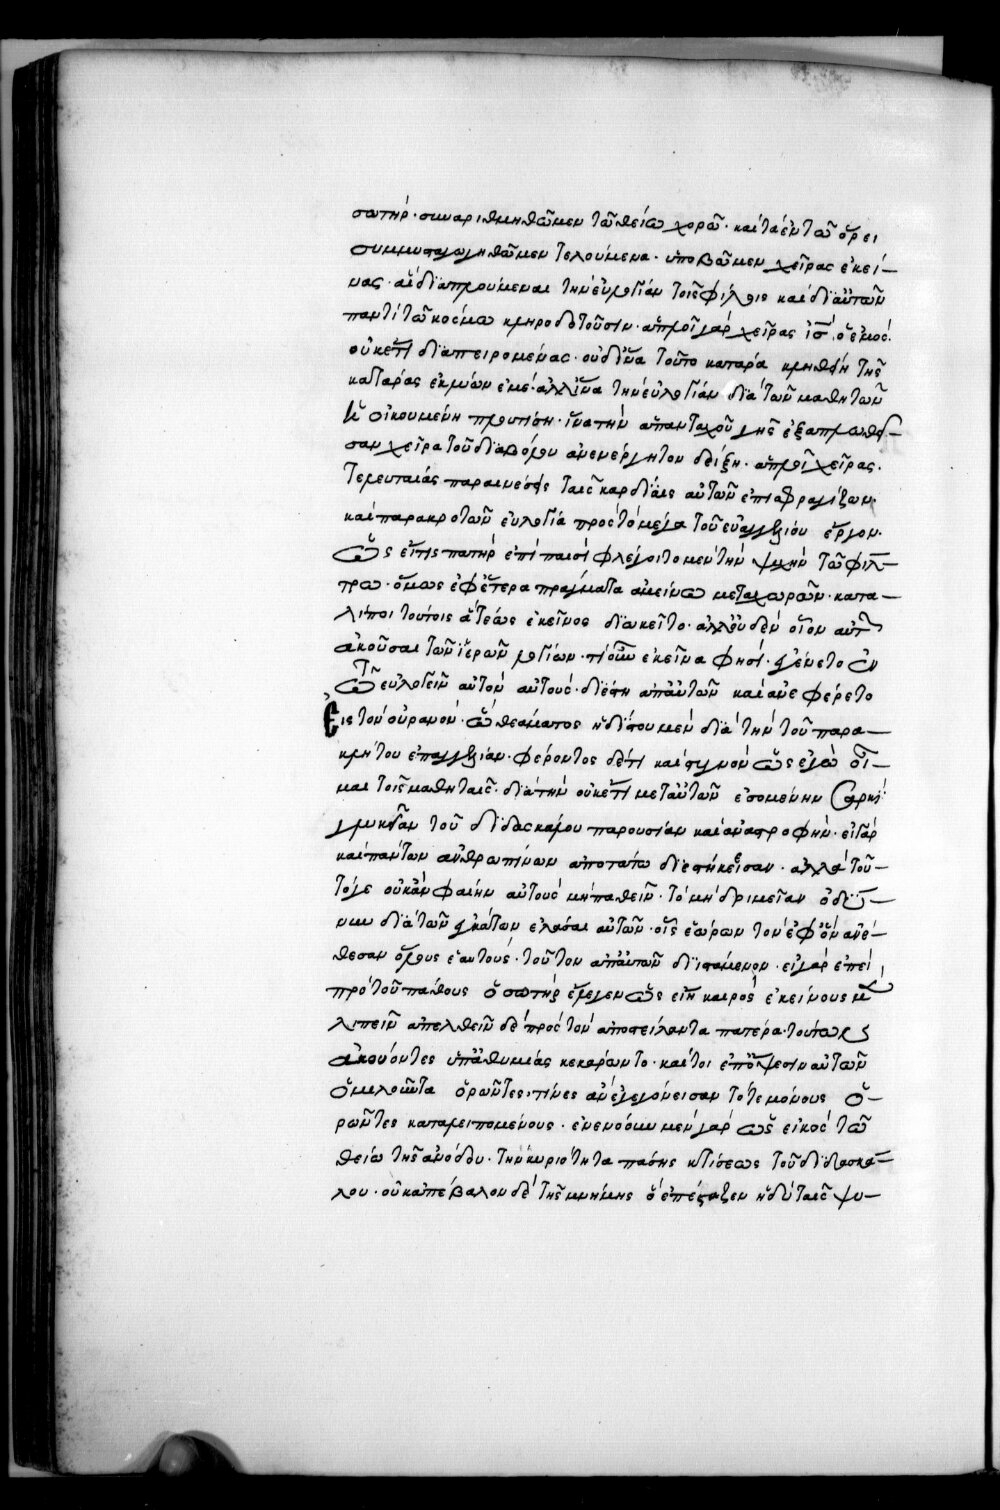 σωτήρ· συναριθμηθῶμεν τῶ θείω χορῶ· καὶ τὰ ἐν τῶ ὄρει
συμμυσταγωγηθῶμεν τελούμενα· ὑποβῶμεν χεῖρας ἐκεί-
νας· αἳ διαπλούμεναι τὴν εὐλογίαν τοῖς φίλοις καὶ δι' αὐτῶν
παντὶ τῶ κόσμω κληροδοτοῦσιν· ἁπλοῖ γὰρ χεῖρας ισ ὁ ἐμός·
οὐκέτι διαπειρομένας· οὐδ' ἵνα τοῦτο κατάρα κληθῆ τῆς
κατάρας ἐκλύων ἐμέ· ἀλλ' ἵνα τὴν εὐλογίαν διὰ τῶν μαθητῶν
οἰκουμένη προπίση· ἵνα τὴν ἁπανταχοῦ γῆς ἐξαπλωθεῖ-
σαν χεῖρα τοῦ διαβόλου ἀνενέργητον δείξη· ἁπλοῖ χεῖρας·
τελευταίας παραινέσεις ταῖς καρδίαις αὐτῶν ἐπισφραγίζων·
καὶ παρακροτῶν εὐλογία πρὸς τὸ μέγα τοῦ εὐαγγελίου ἔργον·
ὡς εἴ τις πατὴρ ἐπὶ παισὶ φλέγοιτο μὲν τὴν ψυχὴν τῶ φίλ-
τρω· ὅμως ἐφ' ἕτερα πράγματα ἀμείνω μεταχωρῶν· κατα-
λίποι τούτοις ἀτεχνῶς ἐκεῖνος διέκειτο· ἀλλ' οὐδὲν οἷον αὐτῶν
ἀκοῦσαι τῶν ἱερῶν λογίων· τί οὖν ἐκεῖνα φησί· ἐγένετο ἐν
τῶ εὐλογεῖν αὐτὸν αὐτούς· διέστη ἀπ' αὐτῶν καὶ ἀνεφέρετο
Εἰς τὸν οὐρανόν· ὢ θεάματος ἡδίστου μὲν διὰ τὴν τοῦ παρα-
κλήτου ἐπαγγελίαν· φέροντος δέ τι καὶ στυγνὸν ὡς ἐγὼ οἶ-
μαι τοῖς μαθηταῖς· διὰ τὴν οὐκέτι μετ' αὐτῶν ἐσομένην σαρκὶ
γλυκεῖαν τοῦ διδασκάλου παρουσίαν καὶ ἀναστροφήν· εἰ γὰρ
καὶ πάντων ἀνθρωπίνων ἀποτάτω διεστήκεισαν· ἀλλὰ τοῦ-
τό γε οὐκ ἂν φαίην αὐτοὺς μὴ παθεῖν· τὸ μὴ δριμεῖαν ὀδύ-
νην διὰ τῶν ἐγκάτων ἐλάσαι αὐτῶν· οἷς ἑώρων τὸν ἐφ' ὃν ἀνέ-
θεσαν ὅλους ἑαυτούς· τοῦτον ἀπ' αὐτῶν διιστάμενον· εἰ γὰρ ἐπεὶ
πρὸ τοῦ πάθους ὁ σωτὴρ ἔλεγεν ὡς εἴη καιρὸς ἐκείνους μὲν
λιπεῖν ἀπελθεῖν δὲ πρὸς τὸν ἀποστείλαντα πατέρα· τούτων
ἀκούοντες ὑπ' ἀθυμίας κεκάρωντο· καί τοι ἐπ' ὄψεσιν αὐτῶν
ὁμιλοῦντα ὁρῶντες· τίνες ἂν ἐγεγόνεισαν τότε μόνους ὁ-
ρῶντες καταλειπομένους· ἐνενόουν μὲν γὰρ ὡς εἰκὸς τῶ
θείω τῆς ἀνόδου· τὴν κυριότητα πάσης κτίσεως τοῦ διδασκά-
λου· οὐκ ἀπέβαλον δὲ τῆς μνήμης ὃ ἐπέσταξεν ἡδὺ ταῖς ψυ-